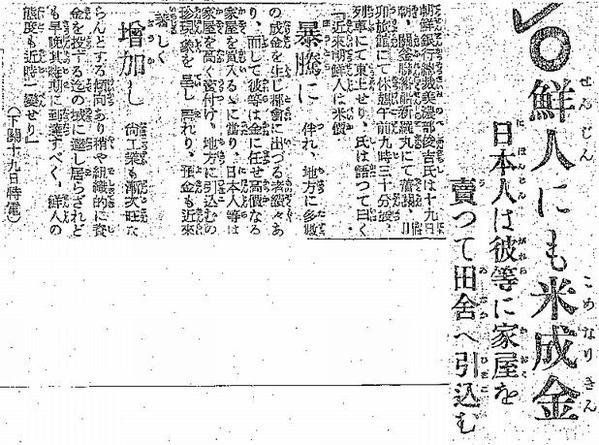 ◎鮮人にも米成金
せんじん こめなりきん
日本人は彼等に家屋を
賣つて田舎へ引込む
朝鮮銀行総裁美濃部俊吉氏は十九日
朝、關釜聯絡船新羅丸にて着關、
旅館にて休憩午前九時三十分發
列車にて東上せり、氏は語つて曰く
「近來朝鮮人は米價
暴騰に 伴れ、地方に多數
の成金を生じ都會に出づる者續々あ
り、而して彼等は金に任せ高價なる
家屋を買入るゝに當り、日本人等は
家屋を高く賣付け、地方に引込むの
珍現象を呈し居れり、預金も近來
著しく
増加し 商工業も漸次旺な
らんとする傾向あり稍や組織的に資
金を投ずる迄の域に達し居らざれど
も早晩其時期に到達すべく、鮮人の
態度も近時一變せり」
(下關十九日特電)